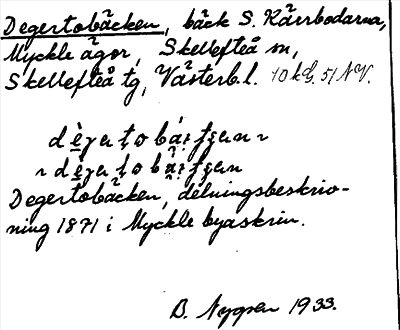 Degertobäcken, bäck S. Kärrbodarna,
Myckle ägor, Skellefteå sn,
Skellefteå tg, Västerb. l. 10 kd. 51 NV.
Degertobäcken, delningsbeskriv-
ning 1871 i Myckle byaskrin.
B. 1933.